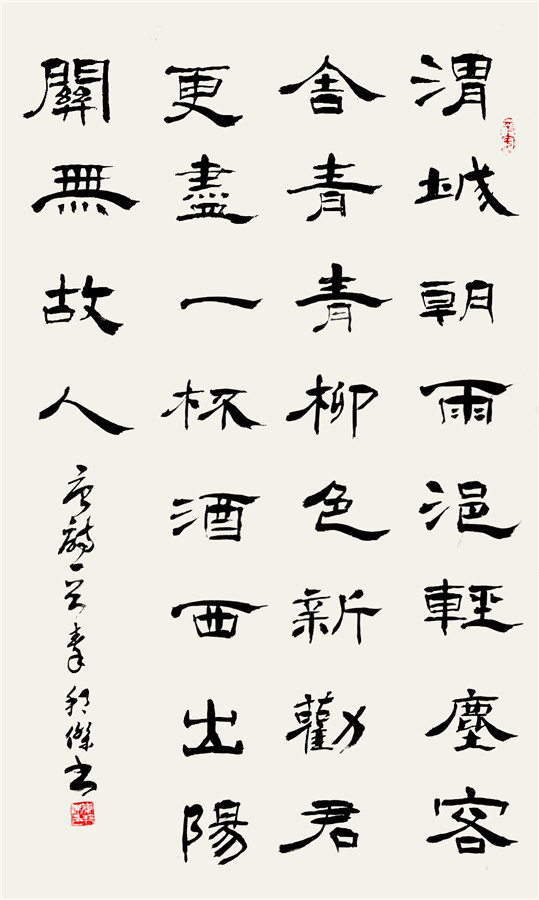 渭城朝雨浥輕塵客
舍青青柳色新勸君
更盡一杯酒西出陽
關無故人
唐詩一首 傑书